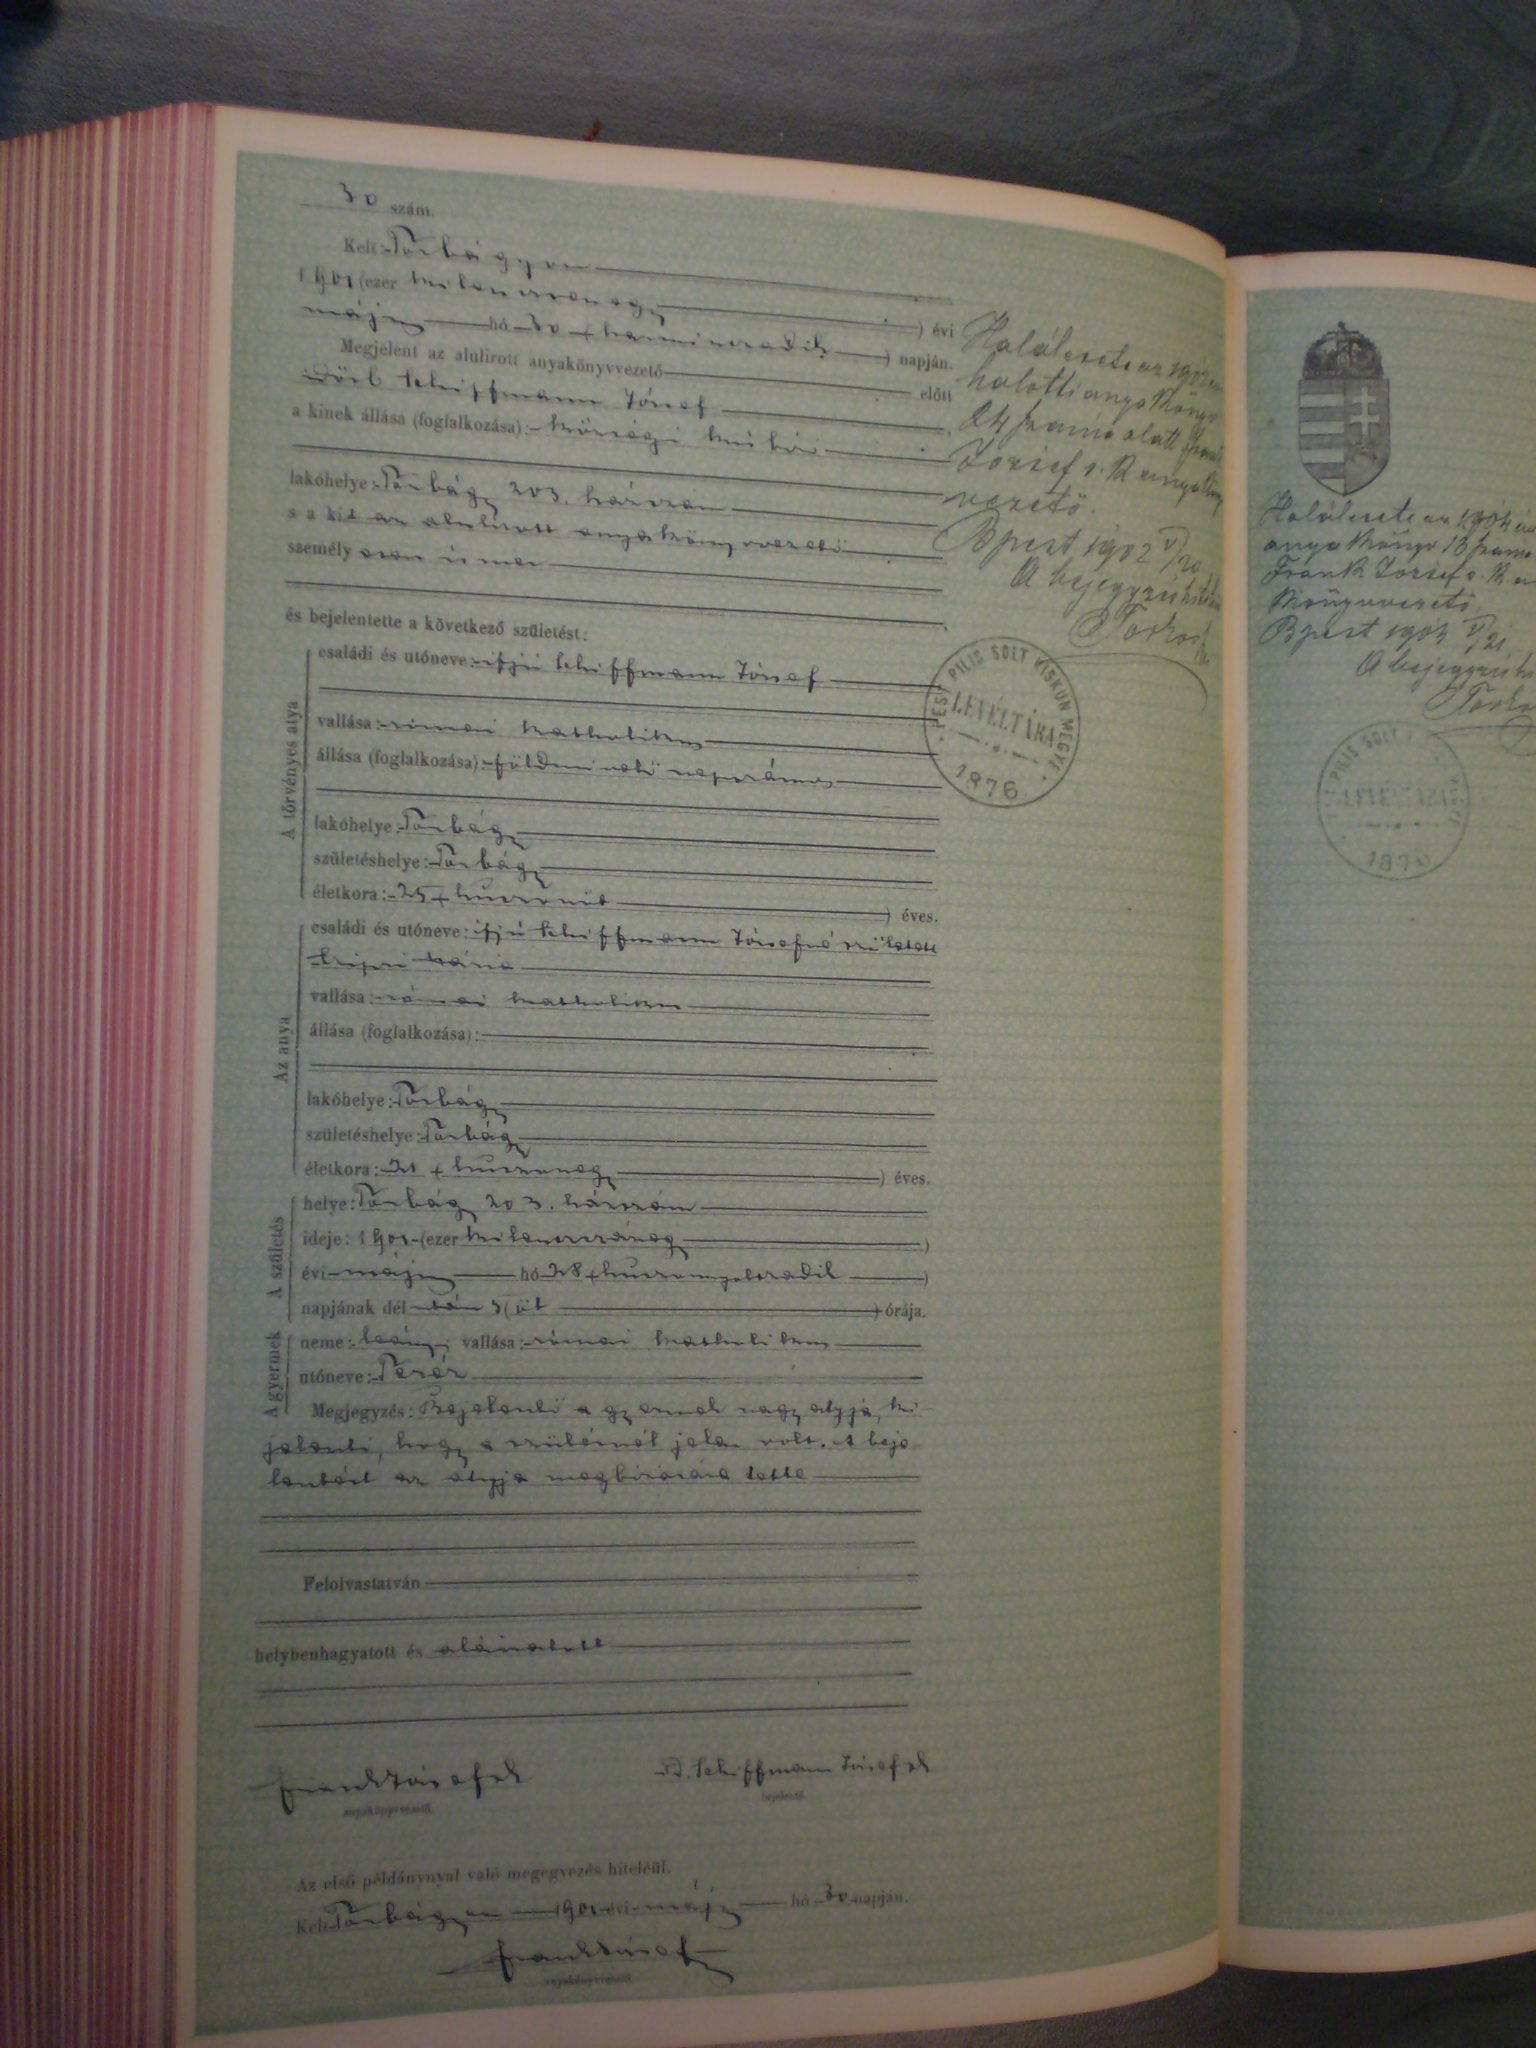 30 szám.
Kelt: Törbágyon
1901 (ezer kilenczszázegy ) évi
május hó 30 (harminczadik ) napján.
Megjelent az alulirott anyakönyvvezető előtt
idősb Schiffmann József
a kinek állása (foglalkozása): községi kisbíró
lakóhelye: Törbágy 203. házszám
s a kit az alulirott anyakönyvvezető
személyesen ismer
és bejelentette a következő születést:
A törvényes atya
családi és utóneve: ifjú Schiffmann József
vallása: római katholikus
állása (foglalkozása): földmivelő napszámos
lakóhelye: Törbágy
születéshelye: Törbágy
életkora: 25 (huszonöt ) éves.
Az anya
családi és utóneve: ifjú Schiffmann Józsefné született
Mária
vallása: római katholikus
állása (foglalkozása):
lakóhelye: Törbágy
születéshelye: Törbágy
életkora: 21 (huszonegy ) éves.
A születés
helye: Törbágy 203. házszám
ideje: 1901 (ezer kilenczszázegy )
évi május hó 28 (huszonnyolczadik )
napjának dél után 5 (öt ) órája.
A gyermek
neme: leány; vallása: római katholikus
utóneve: Teréz
Megjegyzés: Bejelentő a gyermek nagyatyja, ki-
jelenti, hogy a szülésnél jelen volt. A beje
lentést az atyja megbizására tette
Felolvastatván
helybenhagyatott és aláiratott
Frank József sk
anyakönyvvezető.
Id. Schiffmann József sk
bejelentő.
Az első példánynyal való megegyezés hiteléül.
Kelt Törbágyon 1901 évi május hó 30 napján.
Frank József
anyakönyvvezető.
Halálesete az 1902
halotti anyakönyv
24 száma alatt Frank
József s. k. anyakönyv
vezető.
Bpest 1902 V/20
A bejegyzés
PEST PILIS SOLT KISKUN MEGYE
LEVÉLTÁRA
1876
Halálesete az 1904
anyakönyv 13 száma
Frank József s. k.
könyvvezető.
Bpest
A bejegyzés
PILIS SOLT